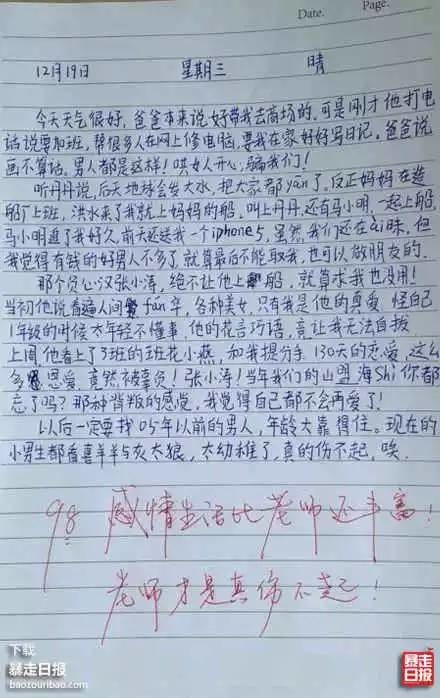 Date.    Page.
12月19日    星期三    晴
今天天气很好，爸爸本来说好带我去商场的，可是刚才他打电
话说要加班，帮很多人在网上修电脑，要我在家好好写日记。爸爸说
画不算话，男人都是这样！哄女人开心，骗我们！
听丹丹说，后天地球会发大水，把大家都yān了。反正妈妈在造
船厂上班，洪水来了我就上妈妈的船，叫上丹丹，还有马小明，一起上船，
马小明追了我好久，前天还送我一个iphone5，虽然我们还在ai昧，但
我觉得有钱的好男人不多了，就算最后不能取我，也可以做朋友的。
那个负心汉张小涛，绝不让他上船，就算求我也没用！
当初他说看遍人间fán华，各种美女，只有我是他的真爱，怪自己
1年级的时候太年轻不懂事，他的花言巧语，竟让我无法自拔
上周他看上了3班的班花小燕，和我提分手，130天的恋爱，这么
多恩爱，竟然被辜负！张小涛！当年我们的山盟海Shi你都
忘了吗？那种背叛的感觉，我觉得自己都不会再爱了！
以后一定要找05年以前的男人，年龄大靠得住。现在的
小男生都看喜羊羊与灰太狼，太幼稚了，真的伤不起，唉．
98 感情生活比老师还丰富！
老师才是真伤不起！
下载
暴走日报
baozouribao.com
暴走日报